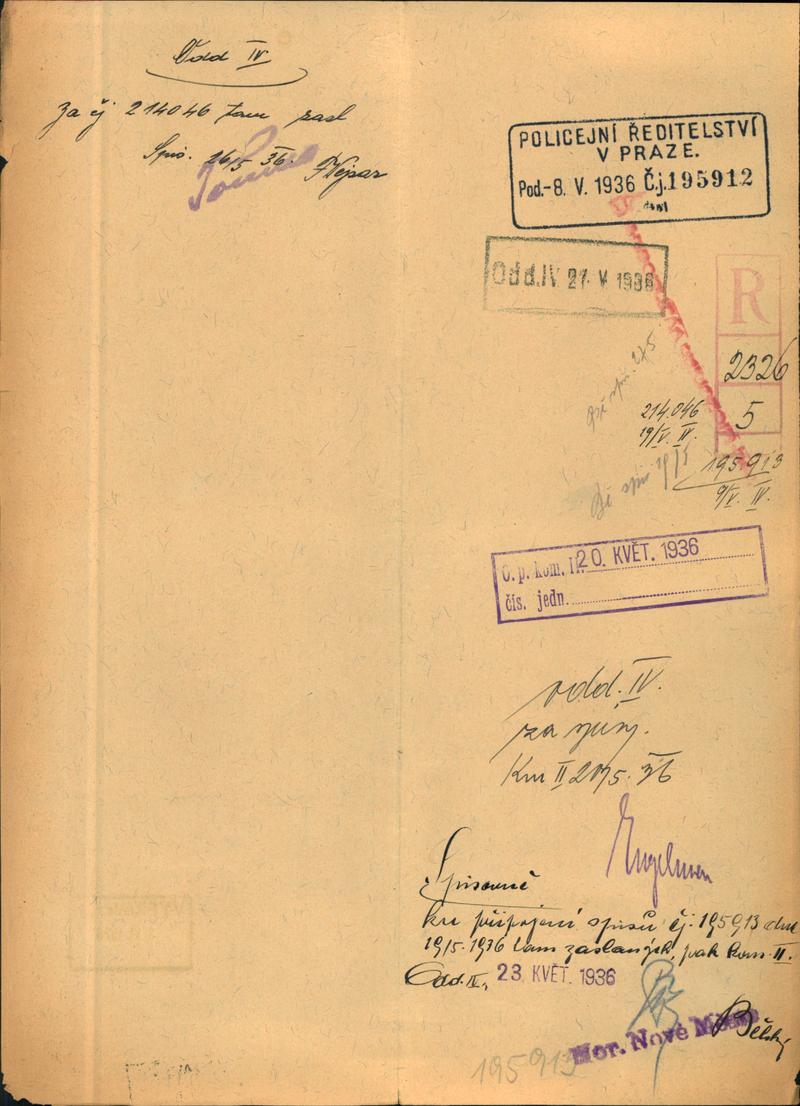 Odd IV
za čj 214046 tam zasl
Spis. 26/5 36.
POLICEJNÍ ŘEDITELSTVÍ
V PRAZE.
Pod.-8. V. 1936 Č.j.195912
Odd.IV 27 V 1936
R
2326
5
214.046
19/V. IV.
195913
9/V. IV.
O. p. kom. II 20. KVĚT. 1936
čís. jedn.
odd. IV.
Km II 20/5. 36
Engelman
Spisovně
ku připojení spisů čj. 195913 dne
19/5. 1936 tam zaslaných, pak kom. II.
Odd. IV. 23 KVĚT. 1936
Bělský
Mor. Nové
195913